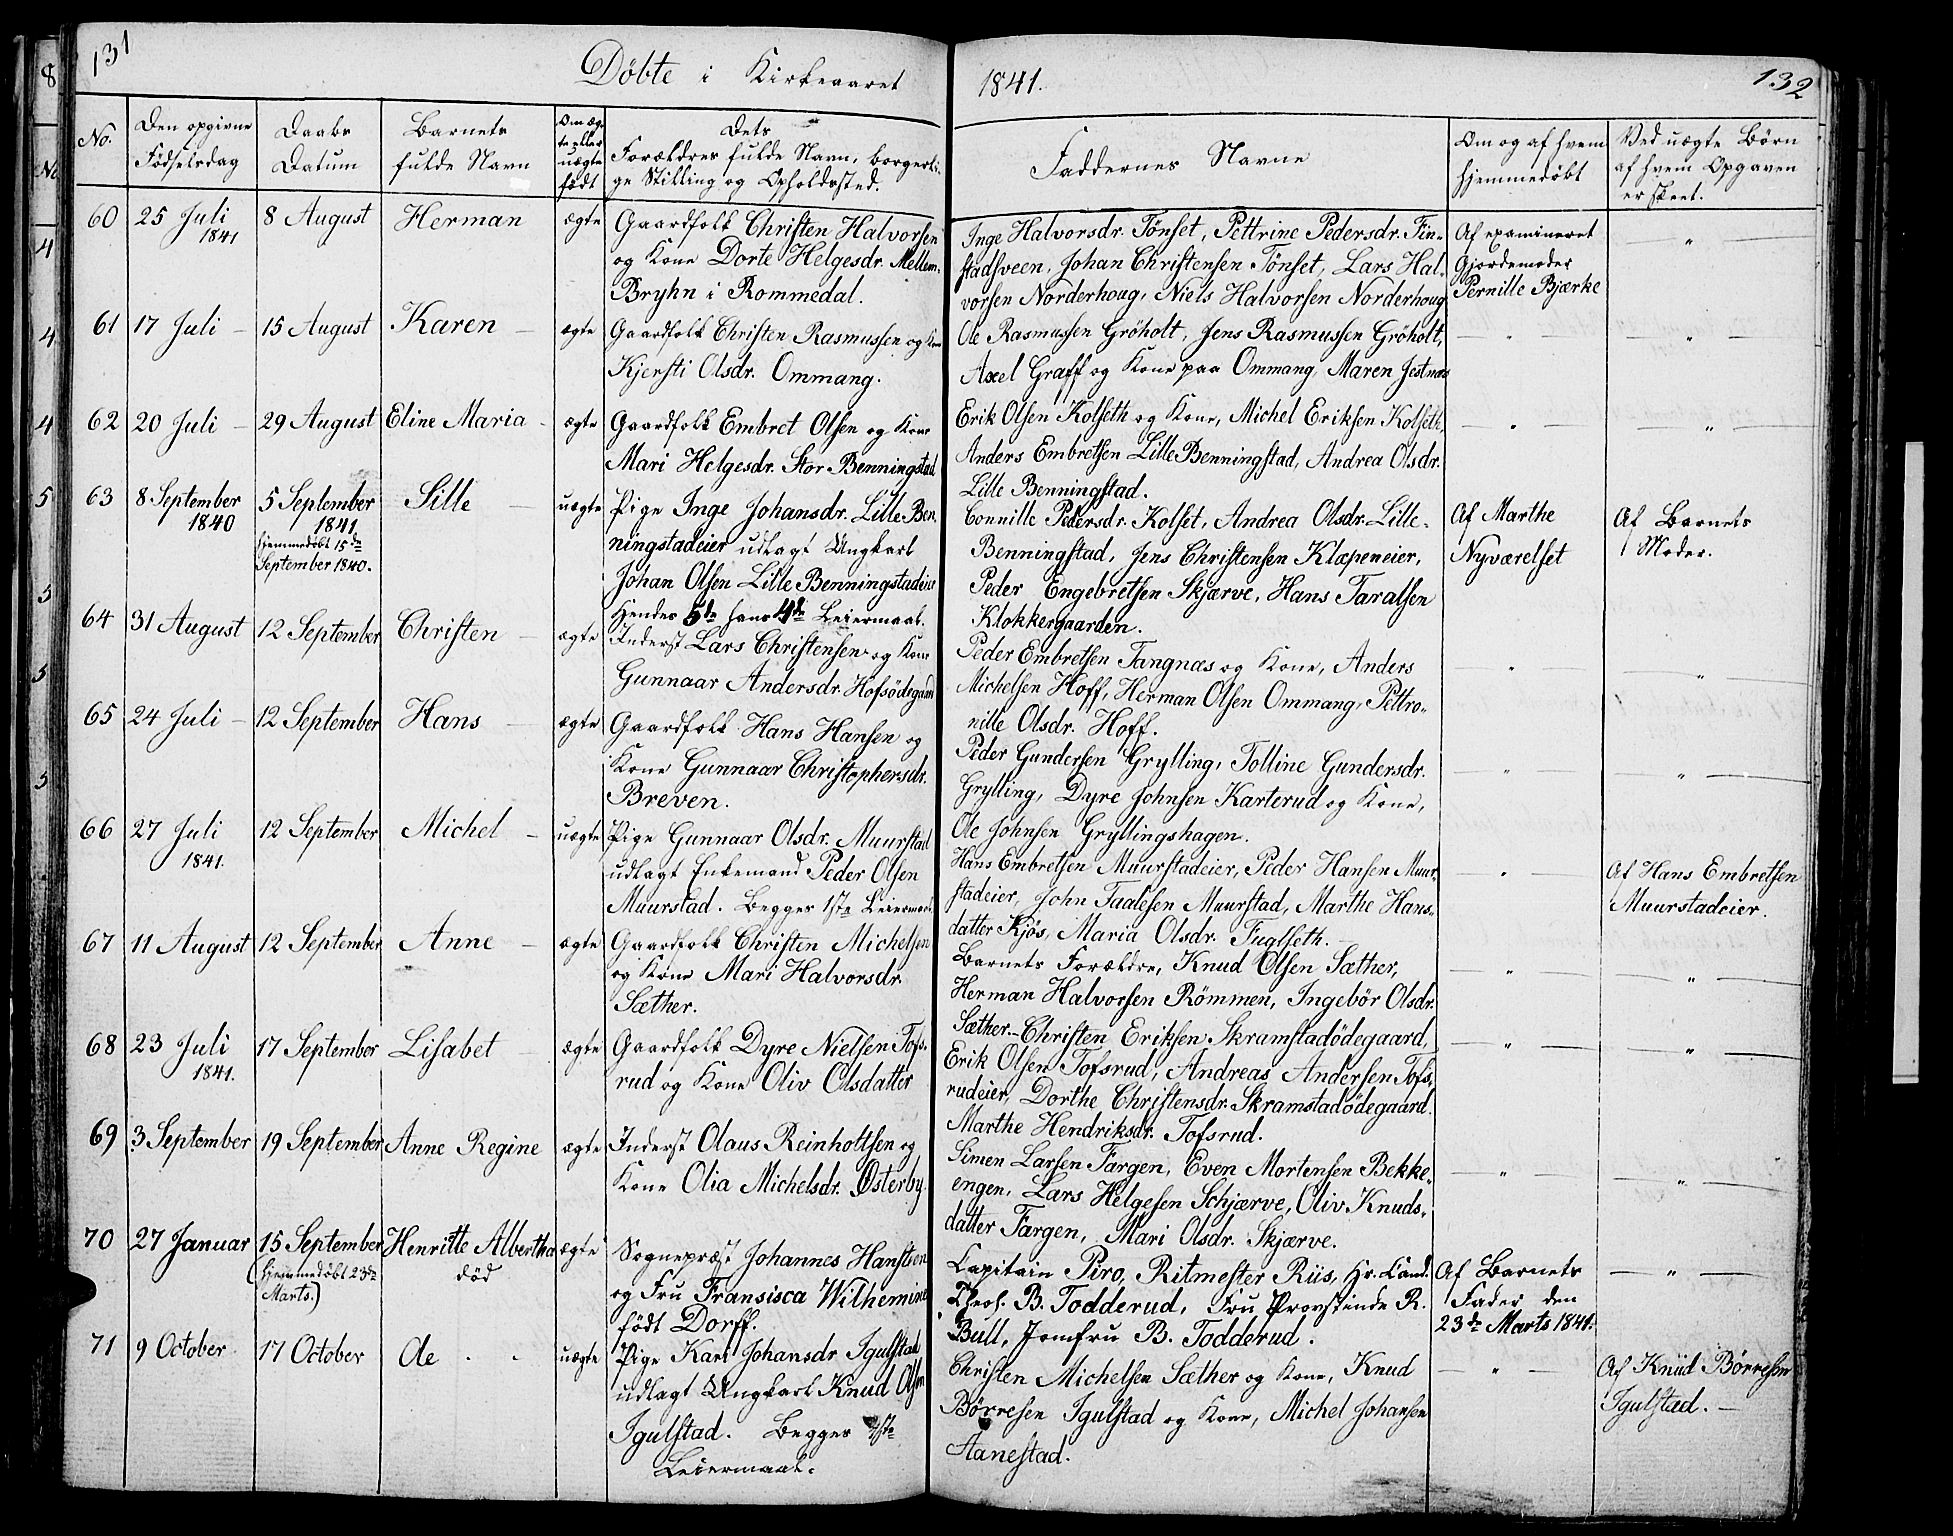 131
Döbte i Kirkeaaret
1841.
132
No.
Den opgivne
Födselsdag
Daabs
Datum
Barnets
fulde Navn
Om æg-
te eller
uægte
födt
Dets
Forældres fulde Navn, borgerli-
ge Stilling og Opholdssted.
Faddernes Navne
Om og af hvem
hjemmedöbt
Ved uægte Börn
af hvem Opgaven
er skeet.
60
25 Juli
1841
8 August
Herman
ægte
Gaardfolk Christen Halvorsen
og Kone Dorte Helgesdr. Mellem-
Bryhn i Rommedal.
Inge Halvorsdr. Tönset, Pettrine Pedersdr. Fin-
stadsveen, Johan Christensen Tönset, Lars Hal-
vorsen Norderhoug, Niels Halvorsen Norderhoug
Af examineret
Gjordemoder
Pernille Bjærke
61
17 Juli
15 August
Karen
ægte
Gaardfolk Christen Rasmussen og Kone
Kjersti Olsdr. Ommang.
Ole Rasmussen Gröholt, Jens Rasmussen Gröholt,
Axel Graff og Kone paa Ommang, Maren Jestnæs
62
20 Juli
29 August
Eline Maria
ægte
Gaardfolk Embret Olsen og Kone
Mari Helgesdr. Stor Benningstad
Erik Olsen Kolseth og Kone, Michel Eriksen Kolseth,
Anders Embretsen Lille Benningstad, Andrea Olsdr.
Lille Benningstad.
63
8 September
1840
5 September
1841.
hjemmedöbt 15de
September 1840.
Sille
uægte
Pige Inge Johansdr. Lille Ben-
ningstadeier udlagt Ungkarl
Johan Olsen Lille Benningstadeier
Hendes 5te hans 4de Leiermaal.
Connille Pedersdr. Kolset, Andrea Olsdr. Lille-
Benningstad, Jens Christensen Klæpeneier,
Peder Engebretsen Skjærve, Hans Taralsen
Klokkergaarden.
Af Marthe
Nyværelset
Af Barnets
Moder.
64
31 August
12 September
Christen
ægte
Inderst Lars Christensen og Kone
Gunnaar Andersdr. Hofsödegaard
Peder Embretsen Tangnæs og Kone, Anders
Michelsen Hoff, Herman Olsen Ommang, Pettro-
nille Olsdr. Hoff.
65
24 Juli
12 September
Hans
ægte
Gaardfolk Hans Hansen og
Kone Gunnaar Christophersdr.
Breven.
Peder Gundersen Grylling, Tolline Gundersdr.
Grylling, Dyre Johnsen Karterud og Kone,
Ole Johnsen Gryllingshagen.
66
27 Juli
1841.
12 September
Michel
uægte
Pige Gunnaar Olsdr. Muurstad
udlagt Enkemand Peder Olsen
Muurstad. Begges 1ste Leiermaal.
Hans Embretsen Muurstadeier, Peder Hansen Muur-
stadeier, John Taalesen Muurstad, Marthe Hans-
datter Kjös, Maria Olsdr. Fuglseth.
Af Hans Embretsen
Muurstadeier.
67
11 August
12 September
Anne
ægte
Gaardfolk Christen Michelsen
og Kone Mari Halvorsdr.
Sæther.
Barnets Forældre, Knud Olsen Sæther,
Herman Halvorsen Römmen, Ingebör Olsdr.
Sæther.
68
23 Juli
1841.
17 September
Lisabet
ægte
Gaardfolk Dyre Nielsen Tofs-
rud og Kone Oliv Olsdatter
Christen Eriksen Skramstadödegaard,
Erik Olsen Tofsrud, Andreas Andersen Tofs-
rudeier, Dorthe Christensdr. Skramstadödegaard.
Marthe Hendriksdr. Tofsrud.
69
3 September
19 September
Anne Regine
ægte
Inderst Olaus Reinholtsen og
Kone Olia Michelsdr. Österby.
Simen Larsen Fargen, Even Mortensen Bekke-
engen, Lars Helgesen Schjærve, Oliv Knuds-
datter Fargen, Mari Olsdr. Skjærve.
70
27 Januar
15 September
(hjemmedöbt 23de
Marts.)
Henritte Albertha
död
ægte
Sognepræst Johannes Hansteen
og Fru Fransisca Wilhemine
födt Dorff.
Capitain Piro, Ritmester Riis, Hr. Cand.
Theol. B. Todderud, Fru Provstinde R.
Bull, Jomfru B. Todderud.
Af Barnets
Fader den
23de Marts 1841.
71
9 October
17 October
Ole
uægte
Pige Kari Johansdr Igulstad
udlagt Ungkarl Knud Olsen
Igulstad. Begges 1ste
Leiermaal.
Christen Michelsen Sæther og Kone, Knud
Börresen Igulstad og Kone, Michel Johansen
Aanestad.
Af Knud Börresen
Igulstad.